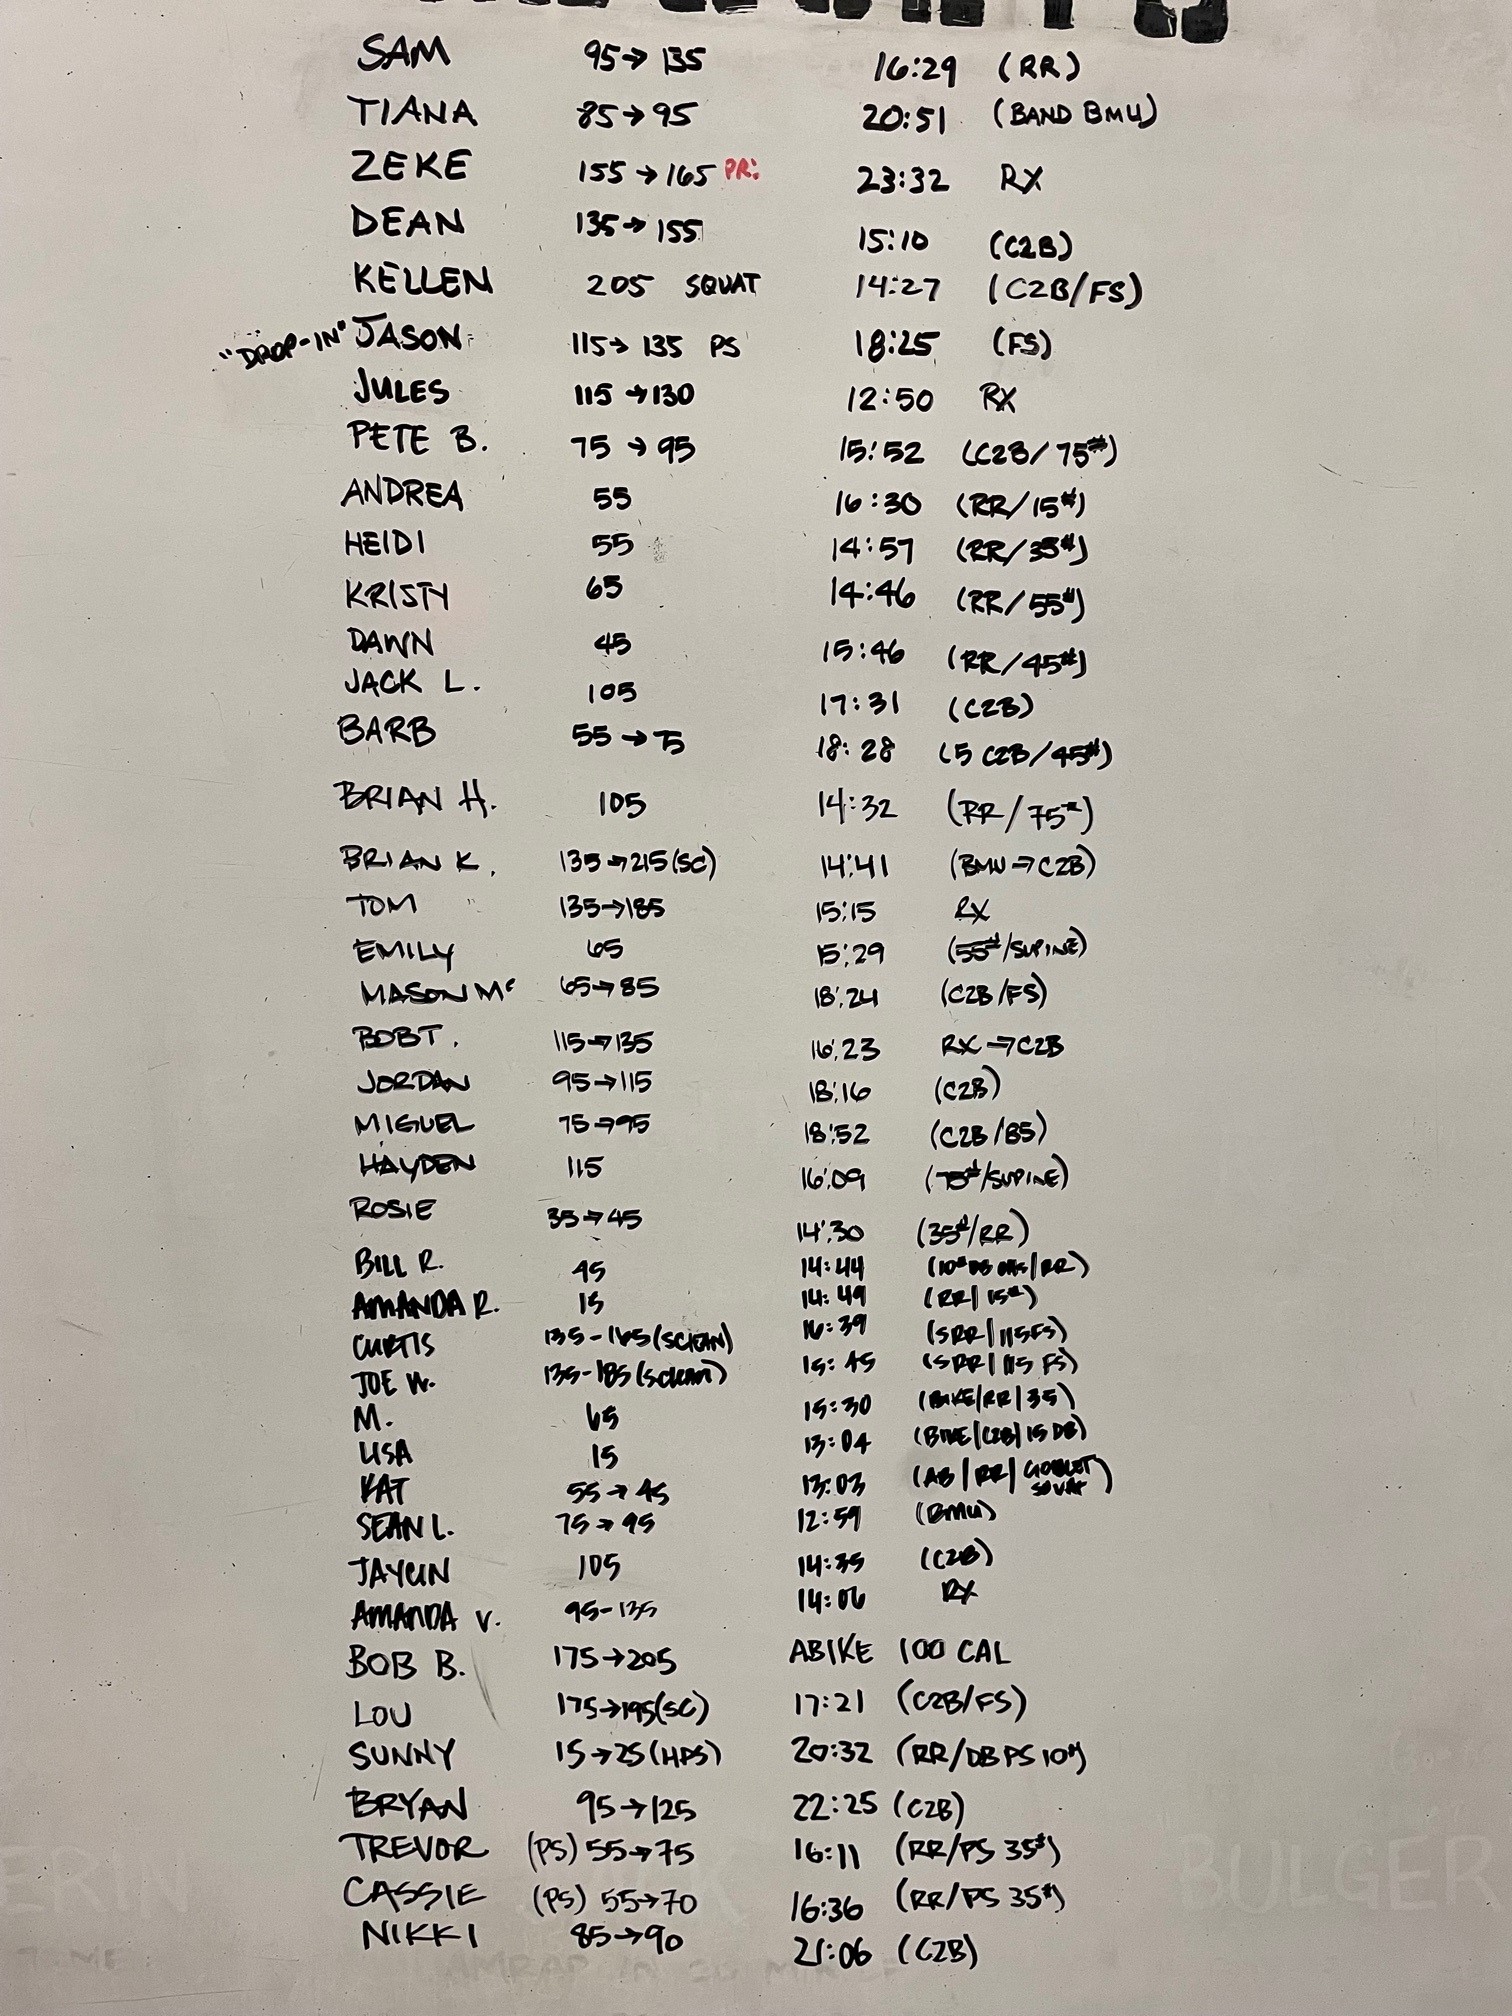 SAM 95→135 16:29 (RR)
TIANA 85→95 20:51 (BAND BMU)
ZEKE 155→165 PR! 23:32 RX
DEAN 135→155 15:10 (C2B)
KELLEN 205 SQUAT 14:27 (C2B/FS)
"DROP-IN" JASON 115→135 PS 18:25 (FS)
JULES 115→130 12:50 RX
PETE B. 75→95 15:52 (C2B/75#)
ANDREA 55 16:30 (RR/15#)
HEIDI 55 14:57 (RR/35#)
KRISTY 65 14:46 (RR/55#)
DAWN 45 15:46 (RR/45#)
JACK L. 105 17:31 (C2B)
BARB 55→75 18:28 (5 C2B/45#)
BRIAN H. 105 14:32 (RR/75#)
BRIAN K. 135→215(SC) 14:41 (BMU→C2B)
TOM 135→185 15:15 RX
EMILY 65 15:29 (55#/SUPINE)
MASON Mc 65→85 18:24 (C2B/FS)
BOB T. 115→135 16:23 RX→C2B
JORDAN 95→115 18:16 (C2B)
MIGUEL 75→95 18:52 (C2B/85)
HAYDEN 115 16:09 (75#/SUPINE)
ROSIE 35→45 14:30 (35#/RR)
BILL R. 45 14:44 (10# DB /RR)
AMANDA R. 15 14:49 (RR/15#)
CURTIS 135-165(SCLEAN) 16:39 (SRR/115FS)
JOE W. 135-185(SCLEAN) 15:45 (SRR/115 FS)
M. 65 15:30 (BIKE/RR/35)
LISA 15 13:04 (BIKE/C2B/15 DB)
KAT 55→45 13:03 (AB/RR/GOBLET SQUAT)
SEAN L. 75→95 12:59 (BMU)
JAYLIN 105 14:35 (C2B)
AMANDA V. 95-135 14:06 RX
BOB B. 175→205 ABIKE 100 CAL
LOU 175→195(SC) 17:21 (C2B/FS)
SUNNY 15→25(HPS) 20:32 (RR/DB PS 10#)
BRYAN 95→125 22:25 (C2B)
TREVOR (PS) 55→75 16:11 (RR/PS 35#)
ERIN BULGER
CASSIE (PS) 55→70 16:36 (RR/PS 35#)
NIKKI 85→90 21:06 (C2B)